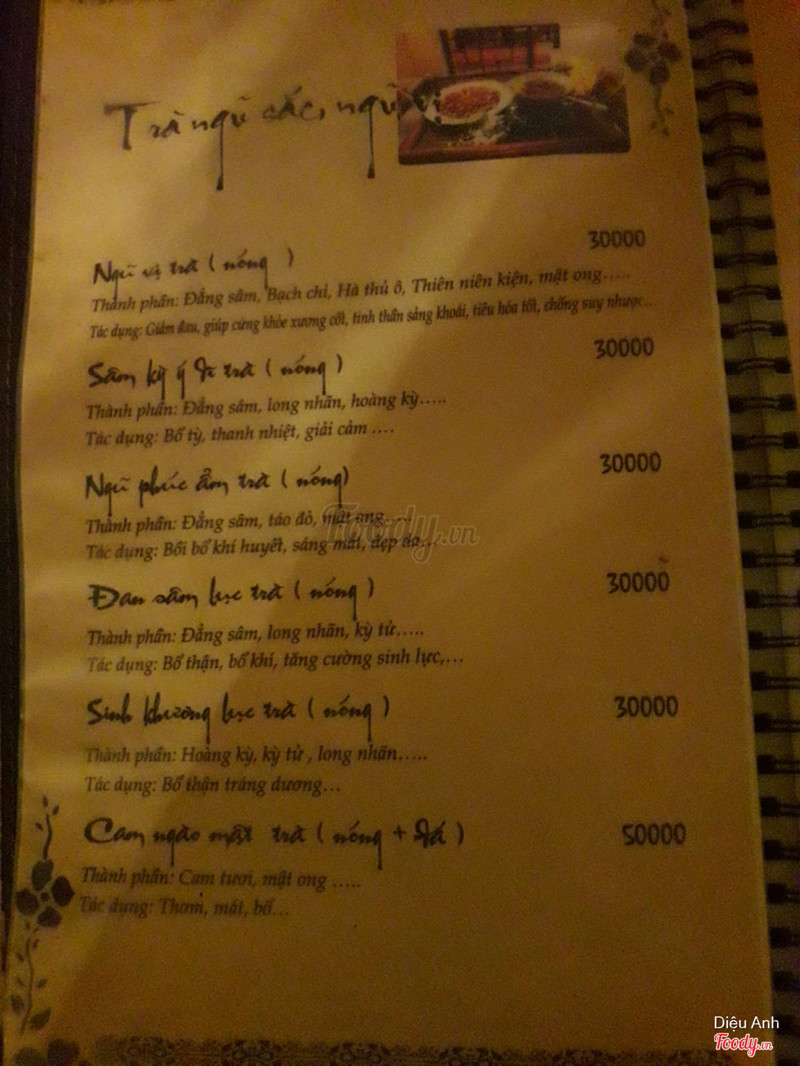 Trà ngũ sắc, ngũ vị
Ngũ vị trà ( nóng ) 30000
Thành phần: Đẳng sâm, Bạch chỉ, Hà thủ ô, Thiên niên kiện, mật ong.....
Tác dụng: Giảm đau, giúp cứng khỏe xương cốt, tinh thần sảng khoái, tiêu hóa tốt, chống suy nhược....
Sâm kỳ ý dĩ trà ( nóng ) 30000
Thành phần: Đẳng sâm, long nhãn, hoàng kỳ.....
Tác dụng: Bổ tỳ, thanh nhiệt, giải cảm ....
Ngũ phúc ẩm trà ( nóng) 30000
Thành phần: Đẳng sâm, táo đỏ, mật ong....
Tác dụng: Bồi bổ khí huyết, sáng mắt, đẹp da...
Foody.vn
Đan sâm lục trà ( nóng ) 30000
Thành phần: Đẳng sâm, long nhãn, kỳ tử.....
Tác dụng: Bổ thận, bổ khí, tăng cường sinh lực,...
Sinh khương lục trà ( nóng ) 30000
Thành phần: Hoàng kỳ, kỳ tử , long nhãn.....
Tác dụng: Bổ thận tráng dương...
Cam ngào mật trà ( nóng + đá ) 50000
Thành phần: Cam tươi, mật ong .....
Tác dụng: Thơm, mát, bổ...
Diệu Anh
Foody.vn